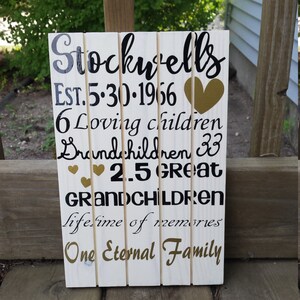 Stockwells
Est. 5·30·1966
6 Loving children
Grandchildren 33
2.5 GREAT
GRANDCHILDREN
lifetime of memories
One Eternal Family